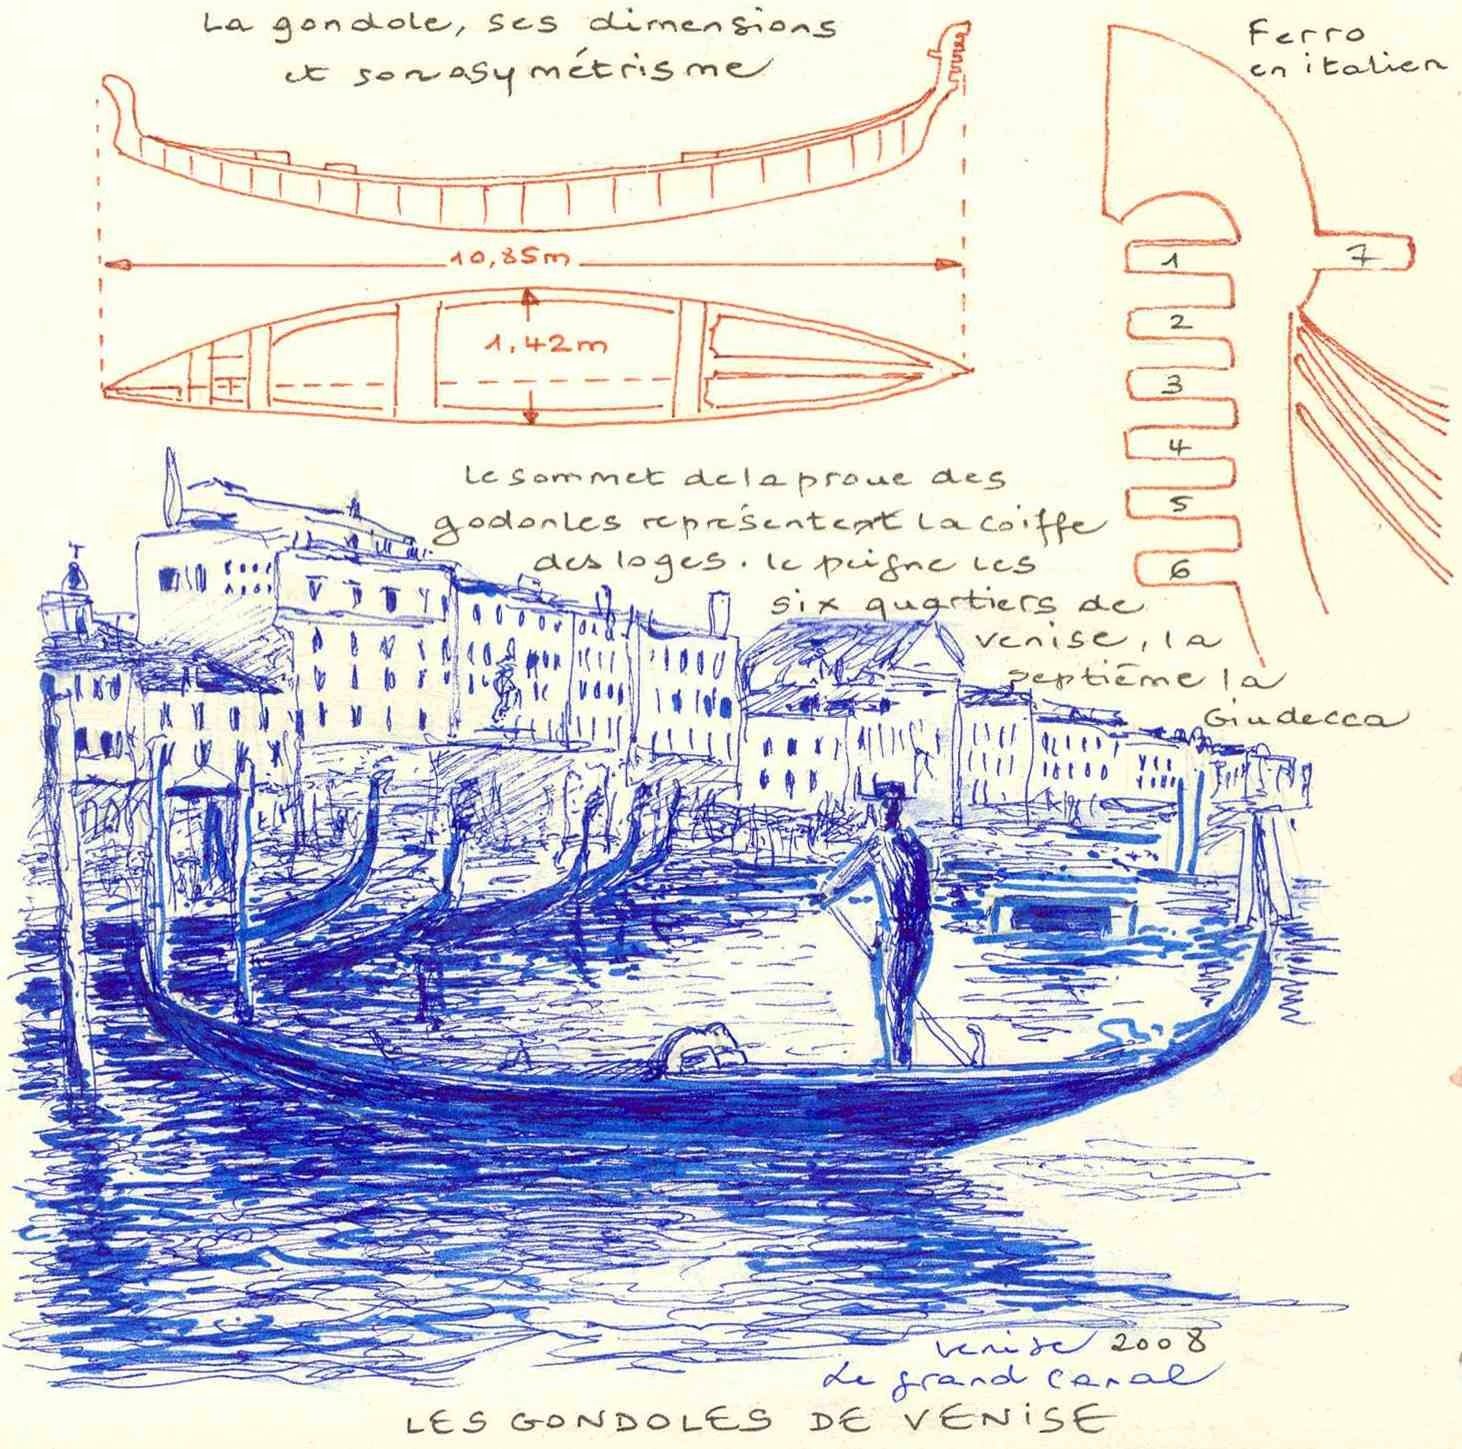 La gondole, ses dimensions
et son asymétrisme
Ferro
en italien
10,85m
1,42m
1
2
3
4
5
6
7
Le sommet de la proue des
godonles représentent la coiffe
des loges. le peigne les
six quartiers de
venise, la
septième la
Giudecca
venise 2008
Le grand Canal
LES GONDOLES DE VENISE